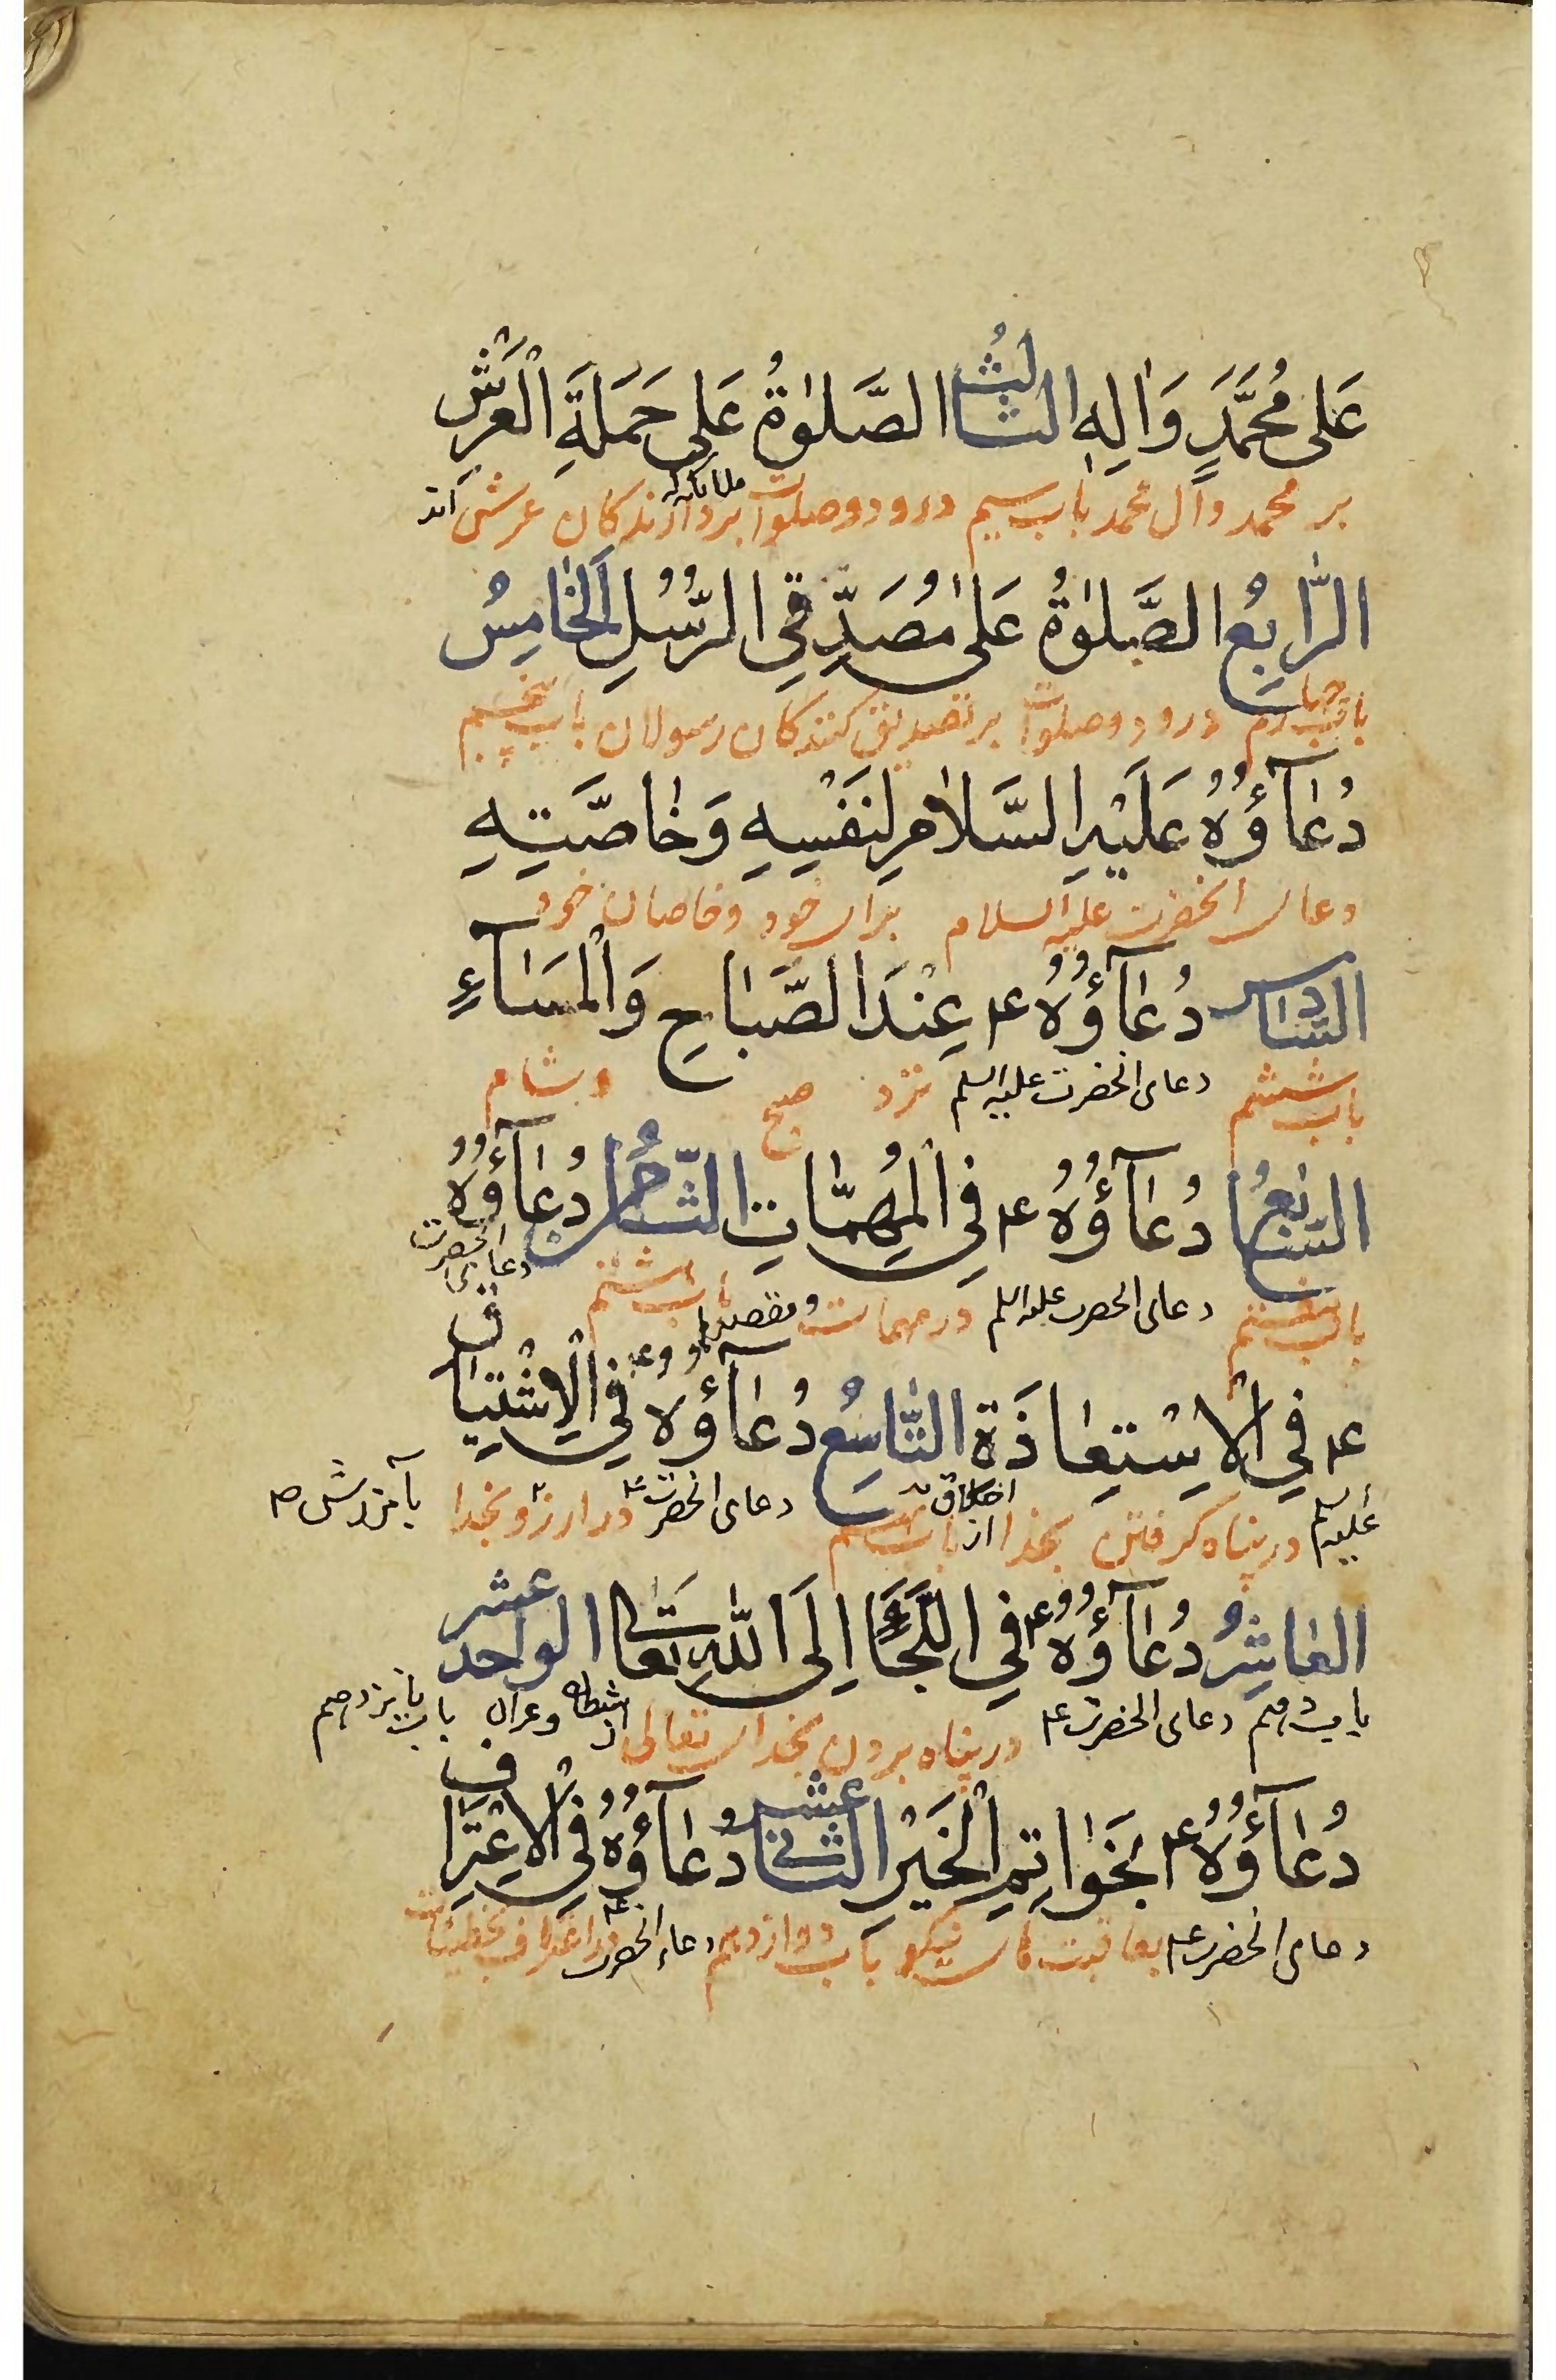 عَلٰى مُحَمَّدٍ وَاٰلِهِ الثَّالِثُ الصَّلٰوةُ عَلٰى حَمَلَةِ الْعَرْشِ
بر محمد وآل محمد باب سیم درود وصلوات بر دارندکان عرش اند
الرَّابِعُ الصَّلٰوةُ عَلٰى مُصَدِّقِي الرُّسُلِ اَلْخَامِسُ
باب چهارم درود وصلوات بر تصدیق کنندکان رسولان باب پنجم
دُعَآؤُهُ عَلَيْهِ السَّلَامِ لِنَفْسِهِ وَخَاصَّتِهِ
دعای انحضرت علیه السلام برای خود وخاصان خود
السَّادِس دُعَآؤُهُ ع عِنْدَ الصَّبَاحِ وَالْمَسَآءِ
باب ششم دعای انحضرت علیه السلم نزد صبح وشام
السَّابِعُ دُعَآؤُهُ ع فِي الْمُهِمَّاتِ الثَّامِنُ دُعَآؤُهُ
باب هفتم دعای انحضرت علیه السلم در مهمات و مقصدها باب هشتم دعای انحضرت
ع فِي الْاِسْتِعَاذَةِ التَّاسِعُ دُعَآؤُهُ ع فِي الْاِشْتِيَاقِ
علیه السلم در پناه کرفتن بخدا از باب نهم دعای انحضرت ع در ارزو بخدا بآمرزش
الْعَاشِرُ دُعَآؤُهُ ع فِي اللَّجَأِ اِلَى اللّٰهِ تَعَالٰى الواحد عشر
باب دهم دعای انحضرت ع در پناه بردن بخدای تعالی باب یازدهم
دُعَآؤُهُ ع بِخَوَاتِمِ الْخَيْرِ الثَّانِي عشر دُعَآؤُهُ فِي الْاِعْتِرَافِ
دعای انحضرت ع بعاقبت های نیکو باب دوازدهم دعای انحضرت ع در اعتراف